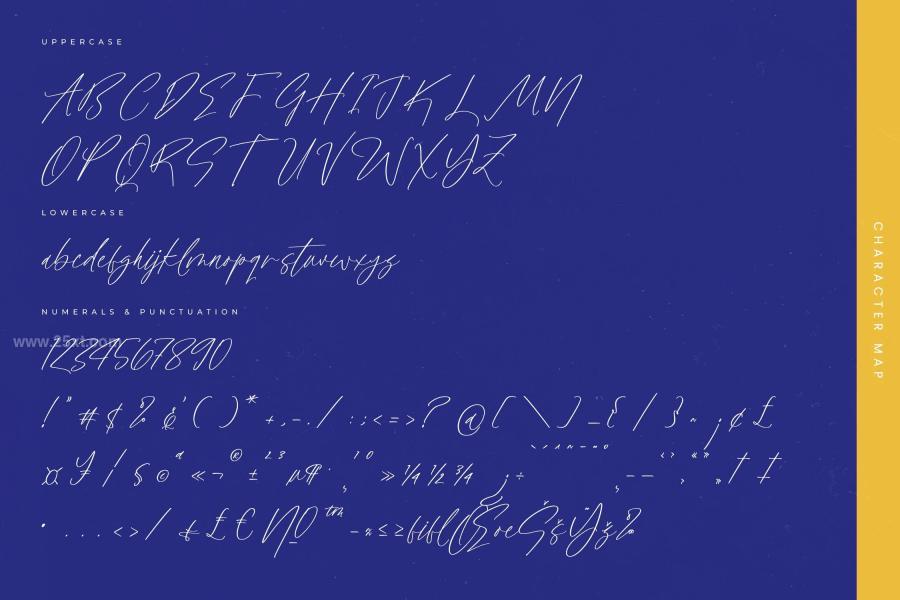 UPPERCASE
ABCDEFGHIJKLMN
OPQRSTUVWXYZ
LOWERCASE
abcdefghijklmnopqrstuvwxyz
NUMERALS & PUNCTUATION
www.25xt.com
1234567890
! " # $ % & ' ( ) * + , - . / : ; < = > ? @ [ \ ] _ { / } ~ ¡ ¢ £
¤ ¥ | § © ª « ¬ ® ± 2 3 µ ¶ · ¸ 1 º » ¼ ½ ¾ ¿ ÷
. . . < > / £ € Nº ™ - ≈ ≤ ≥ fi fl Œ œ Š š Ÿ ž
CHARACTER MAP